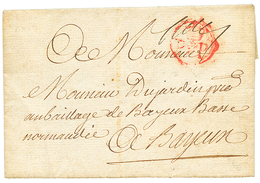 A Monsieur
Monsieur Dujardin
au bailliage de Bayeux Basse
normandie
A Bayeux